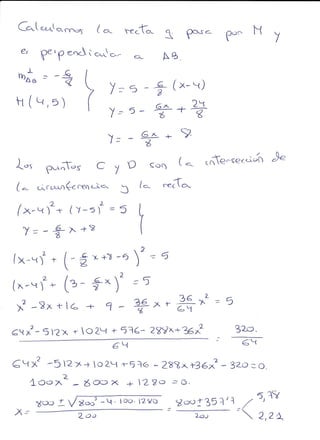 Calculamos la recta q pasa por M y
es perpendicular a AB.
m⊥AB = -6/8
M(4,5)
y = 5 - 6/8 (x-4)
y = 5 - 6x/8 + 24/8
y = - 6x/8 + 8
Los puntos C y D son la intersección de
la circunferencia y la recta
(x-4)² + (y-5)² = 5
y = - 6/8 x + 8
(x-4)² + (- 6/8 x + 8 - 5)² = 5
(x-4)² + (3 - 6/8 x)² = 5
x² - 8x + 16 + 9 - 36/8 x + 36/64 x² = 5
64x² - 512x + 1024 + 576 - 288x + 36x² / 64 = 320 / 64
64x² - 512x + 1024 + 576 - 288x + 36x² - 320 = 0.
100x² - 800x + 1280 = 0.
x = 800 ± √(800² - 4·100·1280) / 200 = / 200 < 5,78
2,21